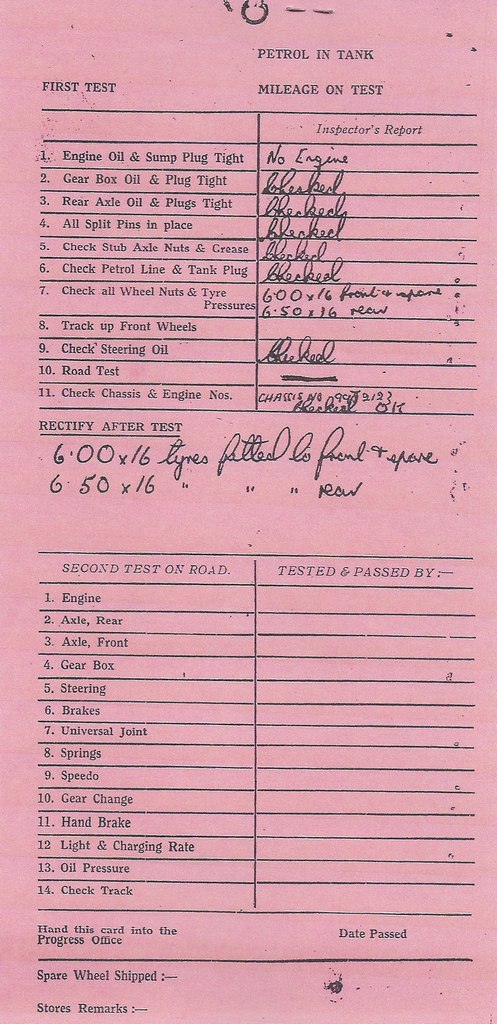 PETROL IN TANK
FIRST TEST MILEAGE ON TEST
Inspector's Report
1. Engine Oil & Sump Plug Tight No Engine
2. Gear Box Oil & Plug Tight Checked
3. Rear Axle Oil & Plugs Tight Checked
4. All Split Pins in place Checked
5. Check Stub Axle Nuts & Grease Checked
6. Check Petrol Line & Tank Plug Checked
7. Check all Wheel Nuts & Tyre 6.00 x 16 front & spare
Pressures 6.50 x 16 rear
8. Track up Front Wheels
9. Check Steering Oil Checked
10. Road Test
11. Check Chassis & Engine Nos. CHASSIS NO
Checked OK
RECTIFY AFTER TEST
6.00 x 16 tyres fitted to front & spare
6 50 x 16 " " " rear
SECOND TEST ON ROAD. TESTED & PASSED BY:—
1. Engine
2. Axle, Rear
3. Axle, Front
4. Gear Box
5. Steering
6. Brakes
7. Universal Joint
8. Springs
9. Speedo
10. Gear Change
11. Hand Brake
12 Light & Charging Rate
13. Oil Pressure
14. Check Track
Hand this card into the
Progress Office Date Passed
Spare Wheel Shipped :—
Stores Remarks :—